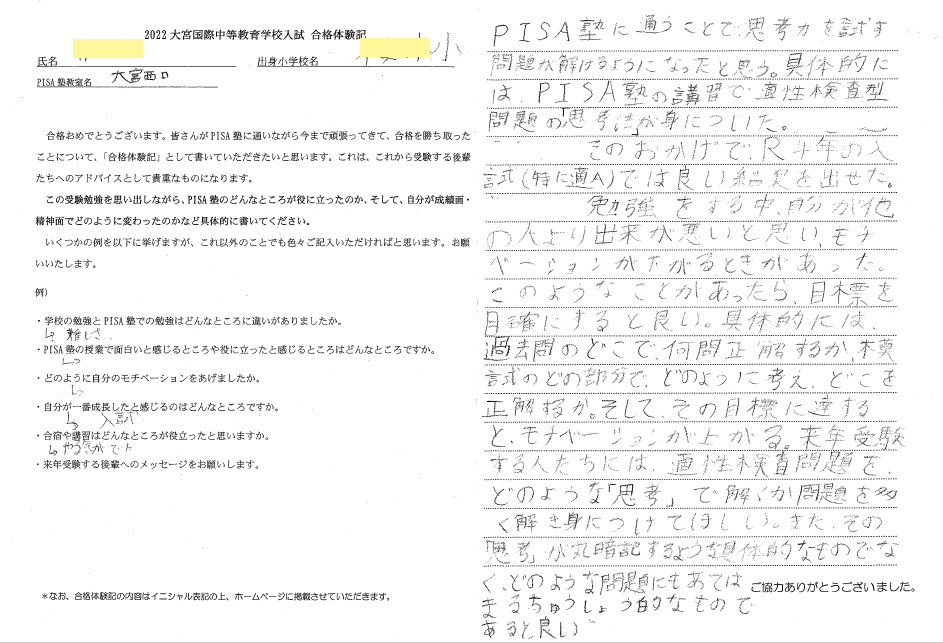 2022 大宮国際中等教育学校入試 合格体験記
氏名
出身小学校名 小
PISA塾教室名 大宮西口
合格おめでとうございます。皆さんがPISA塾に通いながら今まで頑張ってきて、合格を勝ち取った
ことについて、「合格体験記」として書いていただきたいと思います。これは、これから受験する後輩
たちへのアドバイスとして貴重なものになります。
この受験勉強を思い出しながら、PISA塾のどんなところが役に立ったのか、そして、自分が成績面・
精神面でどのように変わったのかなど具体的に書いてください。
いくつかの例を以下に挙げますが、これ以外のことでも色々ご記入いただければと思います。お願
いいたします。
例）
・学校の勉強とPISA塾での勉強はどんなところに違いがありましたか。
↳ 難しさ
・PISA塾の授業で面白いと感じるところや役に立ったと感じるところはどんなところですか。
・どのように自分のモチベーションをあげましたか。
・自分が一番成長したと感じるのはどんなところですか。
↳ 入試
・合宿や講習はどんなところが役立ったと思いますか。
↳ やる気がでた
・来年受験する後輩へのメッセージをお願いします。
＊なお、合格体験記の内容はイニシャル表記の上、ホームページに掲載させていただきます。
PISA塾に通うことで、思考力を試す
問題が解けるようになったと思う。具体的に
は、PISA塾の講習で適性検査型
問題の「思考法」が身についた。
このおかげで、R4年の入
試(特に適A)では良い結果を出せた。
勉強をする中、自分が他
の人より出来が悪いと思い、モチ
ベーションが下がるときがあった。
このようなことがあったら、目標を
明確にすると良い。具体的には、
過去問のどこで、何問正解するか、模
試のどの部分で、どのように考え、どこを
正解するか。そして、その目標に達する
と、モチベーションが上がる。来年受験
する人たちには、適性検査問題を、
どのような「思考」で解くか問題を多
く解き身につけてほしい。また、その
「思考」が丸暗記するような具体的なものでな
く、どのような問題にもあては
まるちゅうしょう的なもので
あると良い
ご協力ありがとうございました。